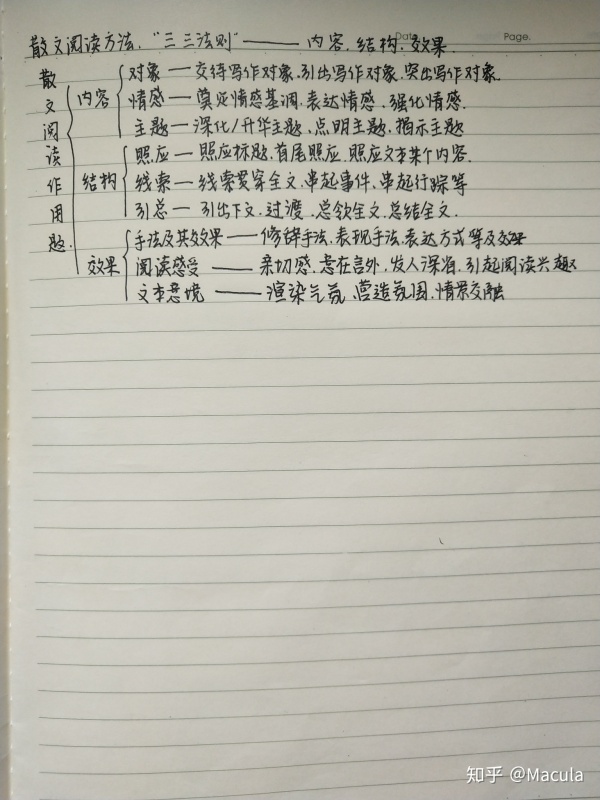 Date. Page.
散文阅读方法.“三三法则”——内容.结构.效果.
散文阅读作用题.
内容
对象—交待写作对象.引出写作对象.突出写作对象.
情感—奠定情感基调.表达情感.强化情感.
主题—深化/升华主题.点明主题.揭示主题
结构
照应—照应标题.首尾照应.照应文本某个内容.
线索—线索贯穿全文.串起事件.串起行踪等
引总—引出下文.过渡.总领全文.总结全文.
效果
手法及其效果——修辞手法.表现手法.表达方式等及效
阅读感受——亲切感.意在言外.发人深省.引起阅读兴趣
文本意境——渲染气氛.营造氛围.情景交融
知乎 @Macula